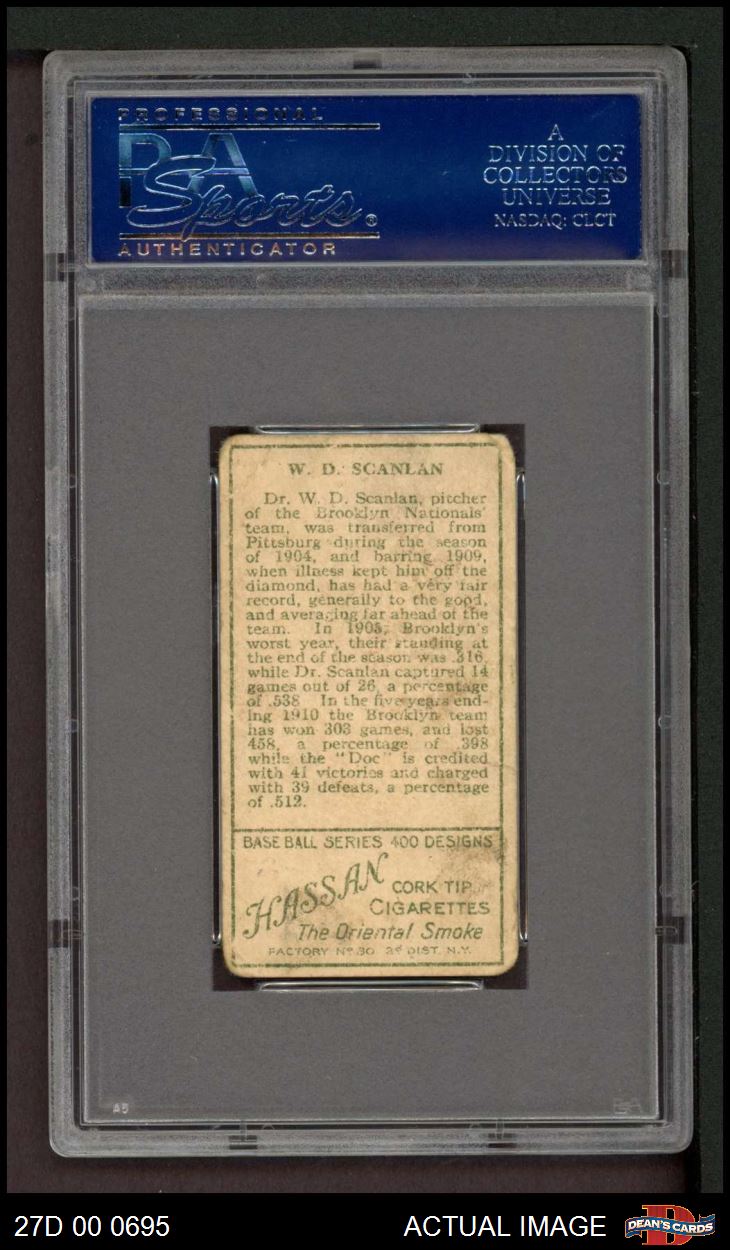 PROFESSIONAL
PSA
Sports®
AUTHENTICATOR
A
DIVISION OF
COLLECTORS
UNIVERSE
NASDAQ: CLCT
W. D. SCANLAN
Dr. W. D. Scanlan, pitcher
of the Brooklyn Nationals'
team, was transferred from
Pittsburg during the season
of 1904, and barring 1909,
when illness kept him off the
diamond, has had a very fair
record, generally to the good,
and averaging far ahead of the
team. In 1905, Brooklyn's
worst year, their standing at
the end of the season was .316,
while Dr. Scanlan captured 14
games out of 26, a percentage
of .538. In the five years end-
ing 1910 the Brooklyn team
has won 303 games, and lost
458, a percentage of .398
while the "Doc" is credited
with 41 victories and charged
with 39 defeats, a percentage
of .512.
BASE BALL SERIES 400 DESIGNS
HASSAN
CORK TIP
CIGARETTES
The Oriental Smoke
FACTORY No. 30 2d DIST. N.Y.
A5
PSA
27D 00 0695
ACTUAL IMAGE
DEAN'S CARDS